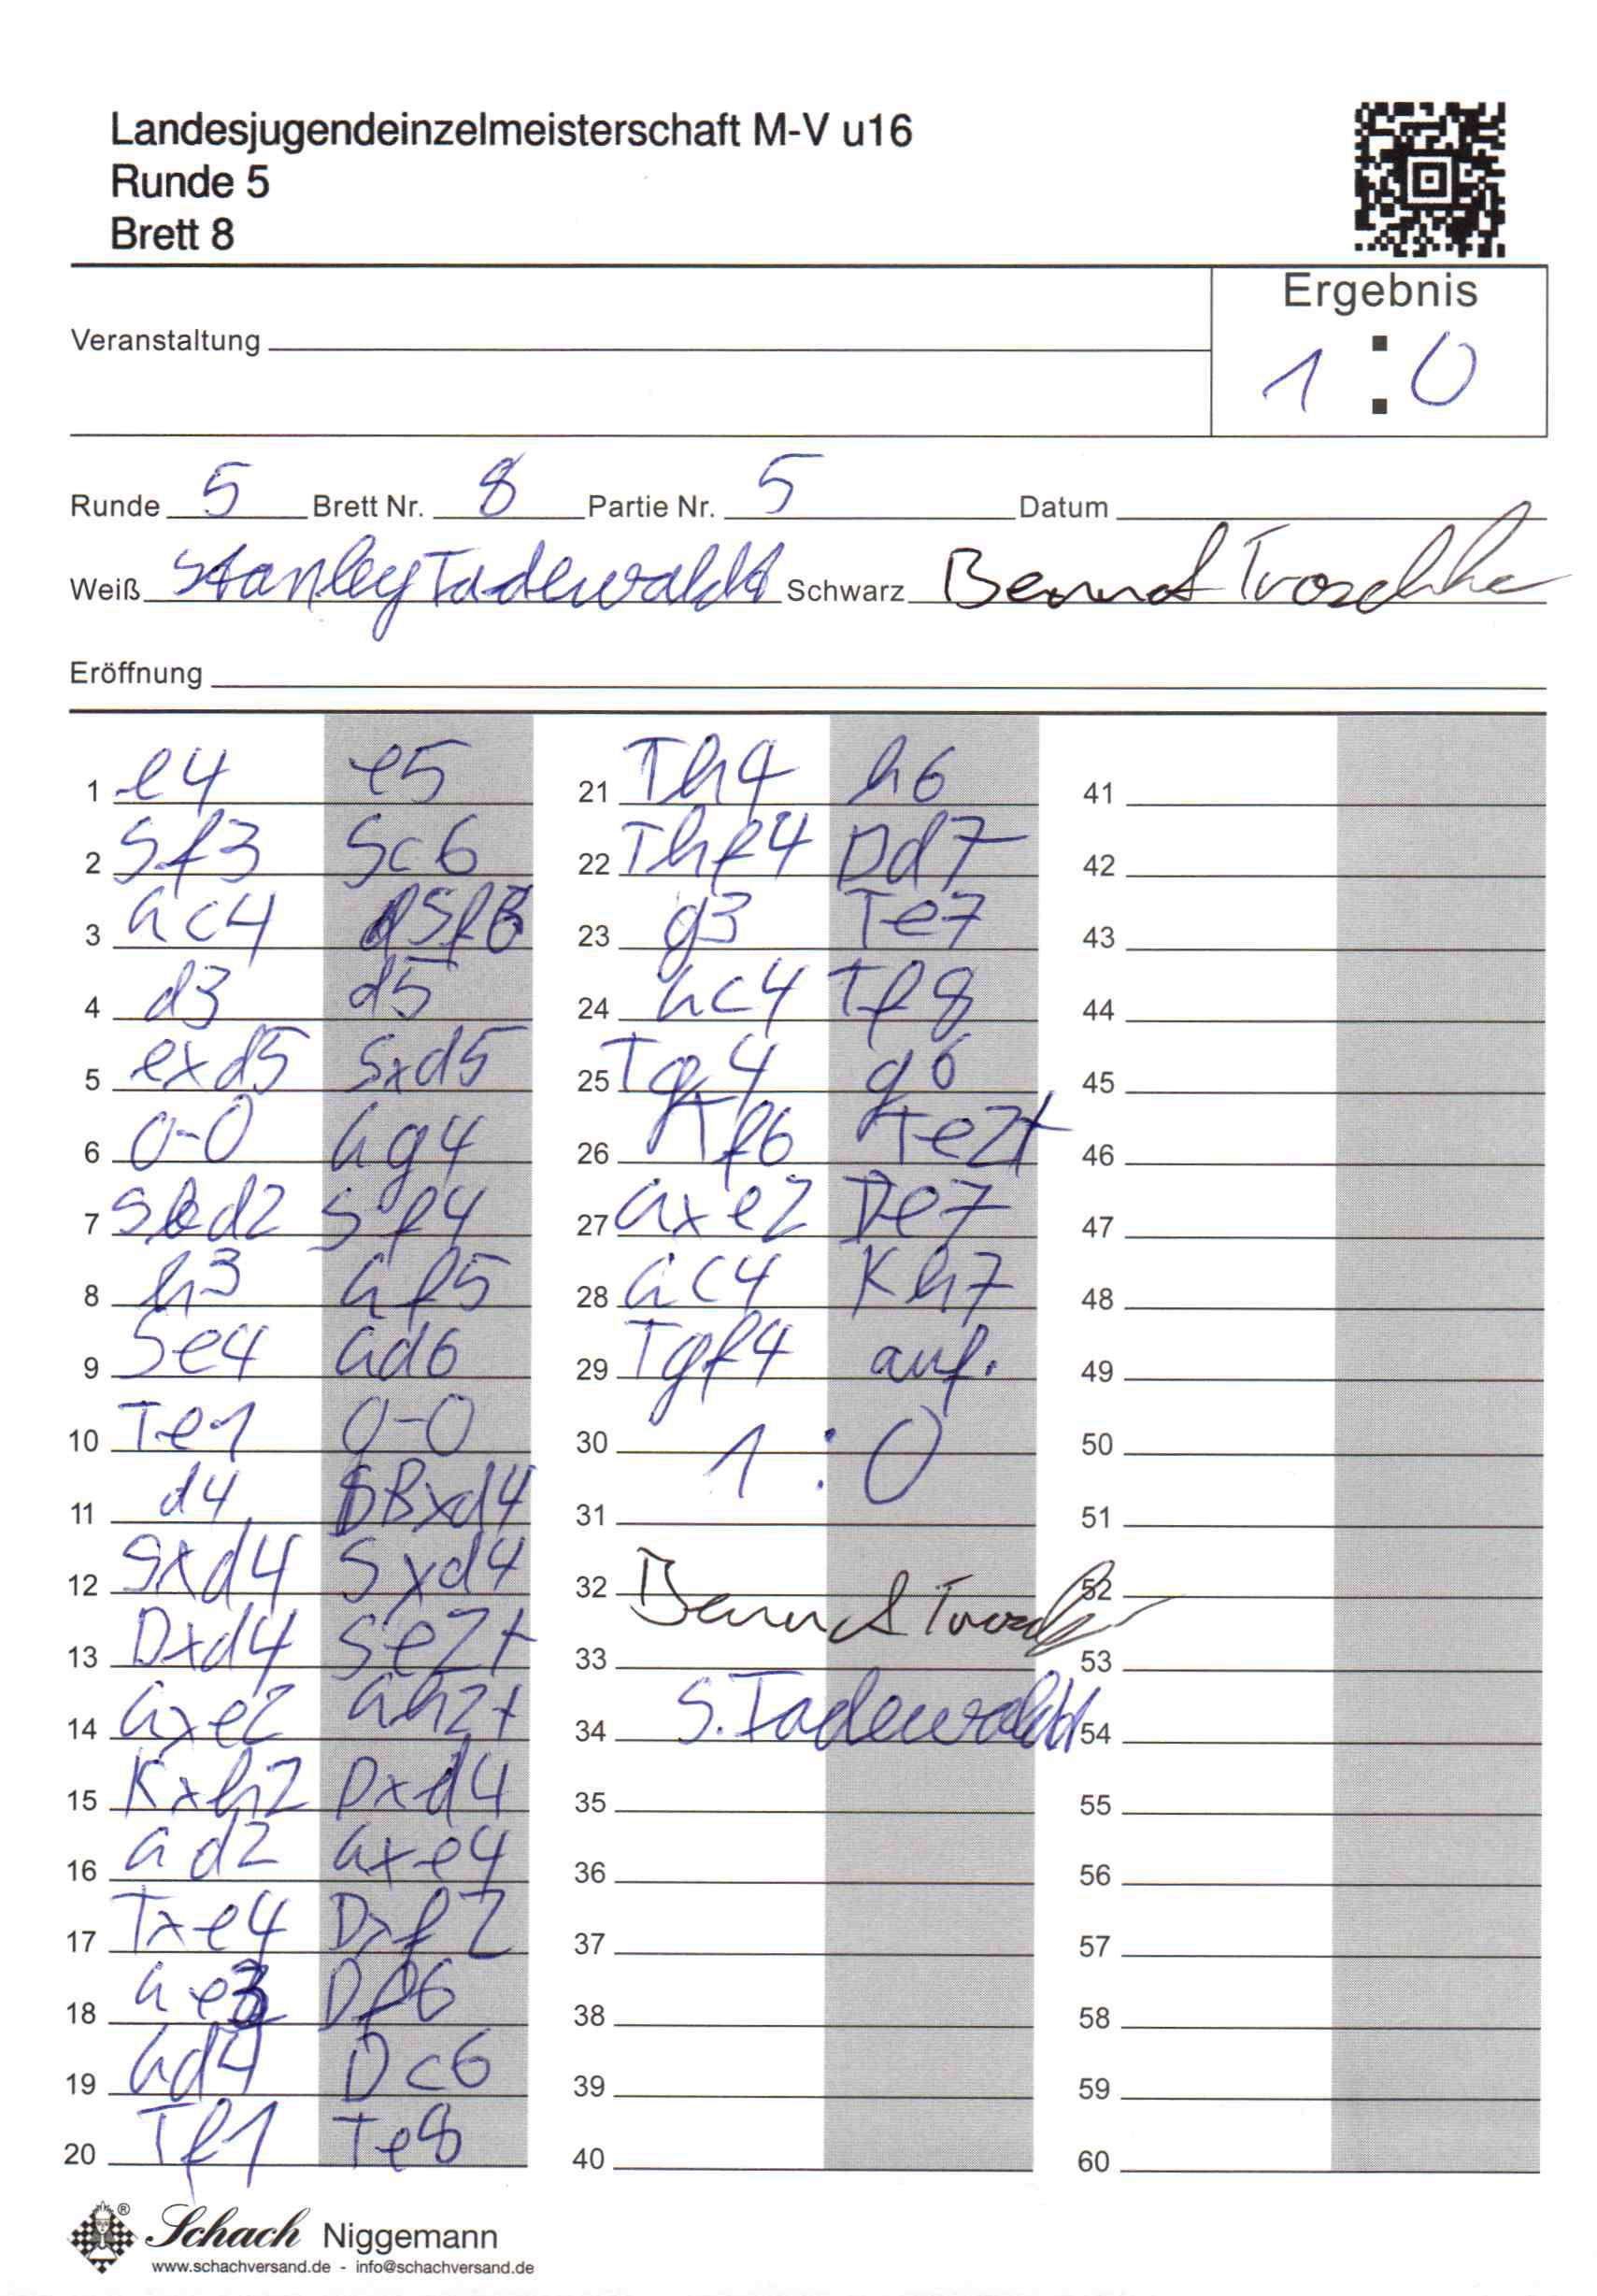 Landesjugendeinzelmeisterschaft M-V u16
Runde 5
Brett 8
Ergebnis
Veranstaltung
1 : 0
Runde 5 Brett Nr. 8 Partie Nr. 5 Datum
Weiß Stanley Tadewaldt Schwarz Bernnd Troschke
Eröffnung
1 e4 e5
2 Sf3 Sc6
3 Lc4 Sf6
4 d3 d5
5 exd5 Sxd5
6 0-0 Lg4
7 Sbd2 Sf4
8 h3 Lf5
9 Se4 Ld6
10 Te1 0-0
11 d4 Bxd4
12 Sxd4 Sxd4
13 Dxd4 Se2+
14 Lxe2 Lh2+
15 Kxh2 Dxd4
16 Ld2 Lxe4
17 Txe4 Dxf2
18 Le3 Df6
19 Ld4 Dc6
20 Tf1 Te8
21 Th4 h6
22 Thf4 Dd7
23 g3 Te7
24 Lc4 Tf8
25 Tg4 g6
26 Lf6 Te2+
27 Lxe2 De7
28 Lc4 Kh7
29 Tgf4 auf.
30 1 : 0
31
32 Bernnd Trosch
33
34 S. Tadewaldt
35
36
37
38
39
40
41
42
43
44
45
46
47
48
49
50
51
52
53
54
55
56
57
58
59
60
Schach Niggemann
www.schachversand.de - info@schachversand.de